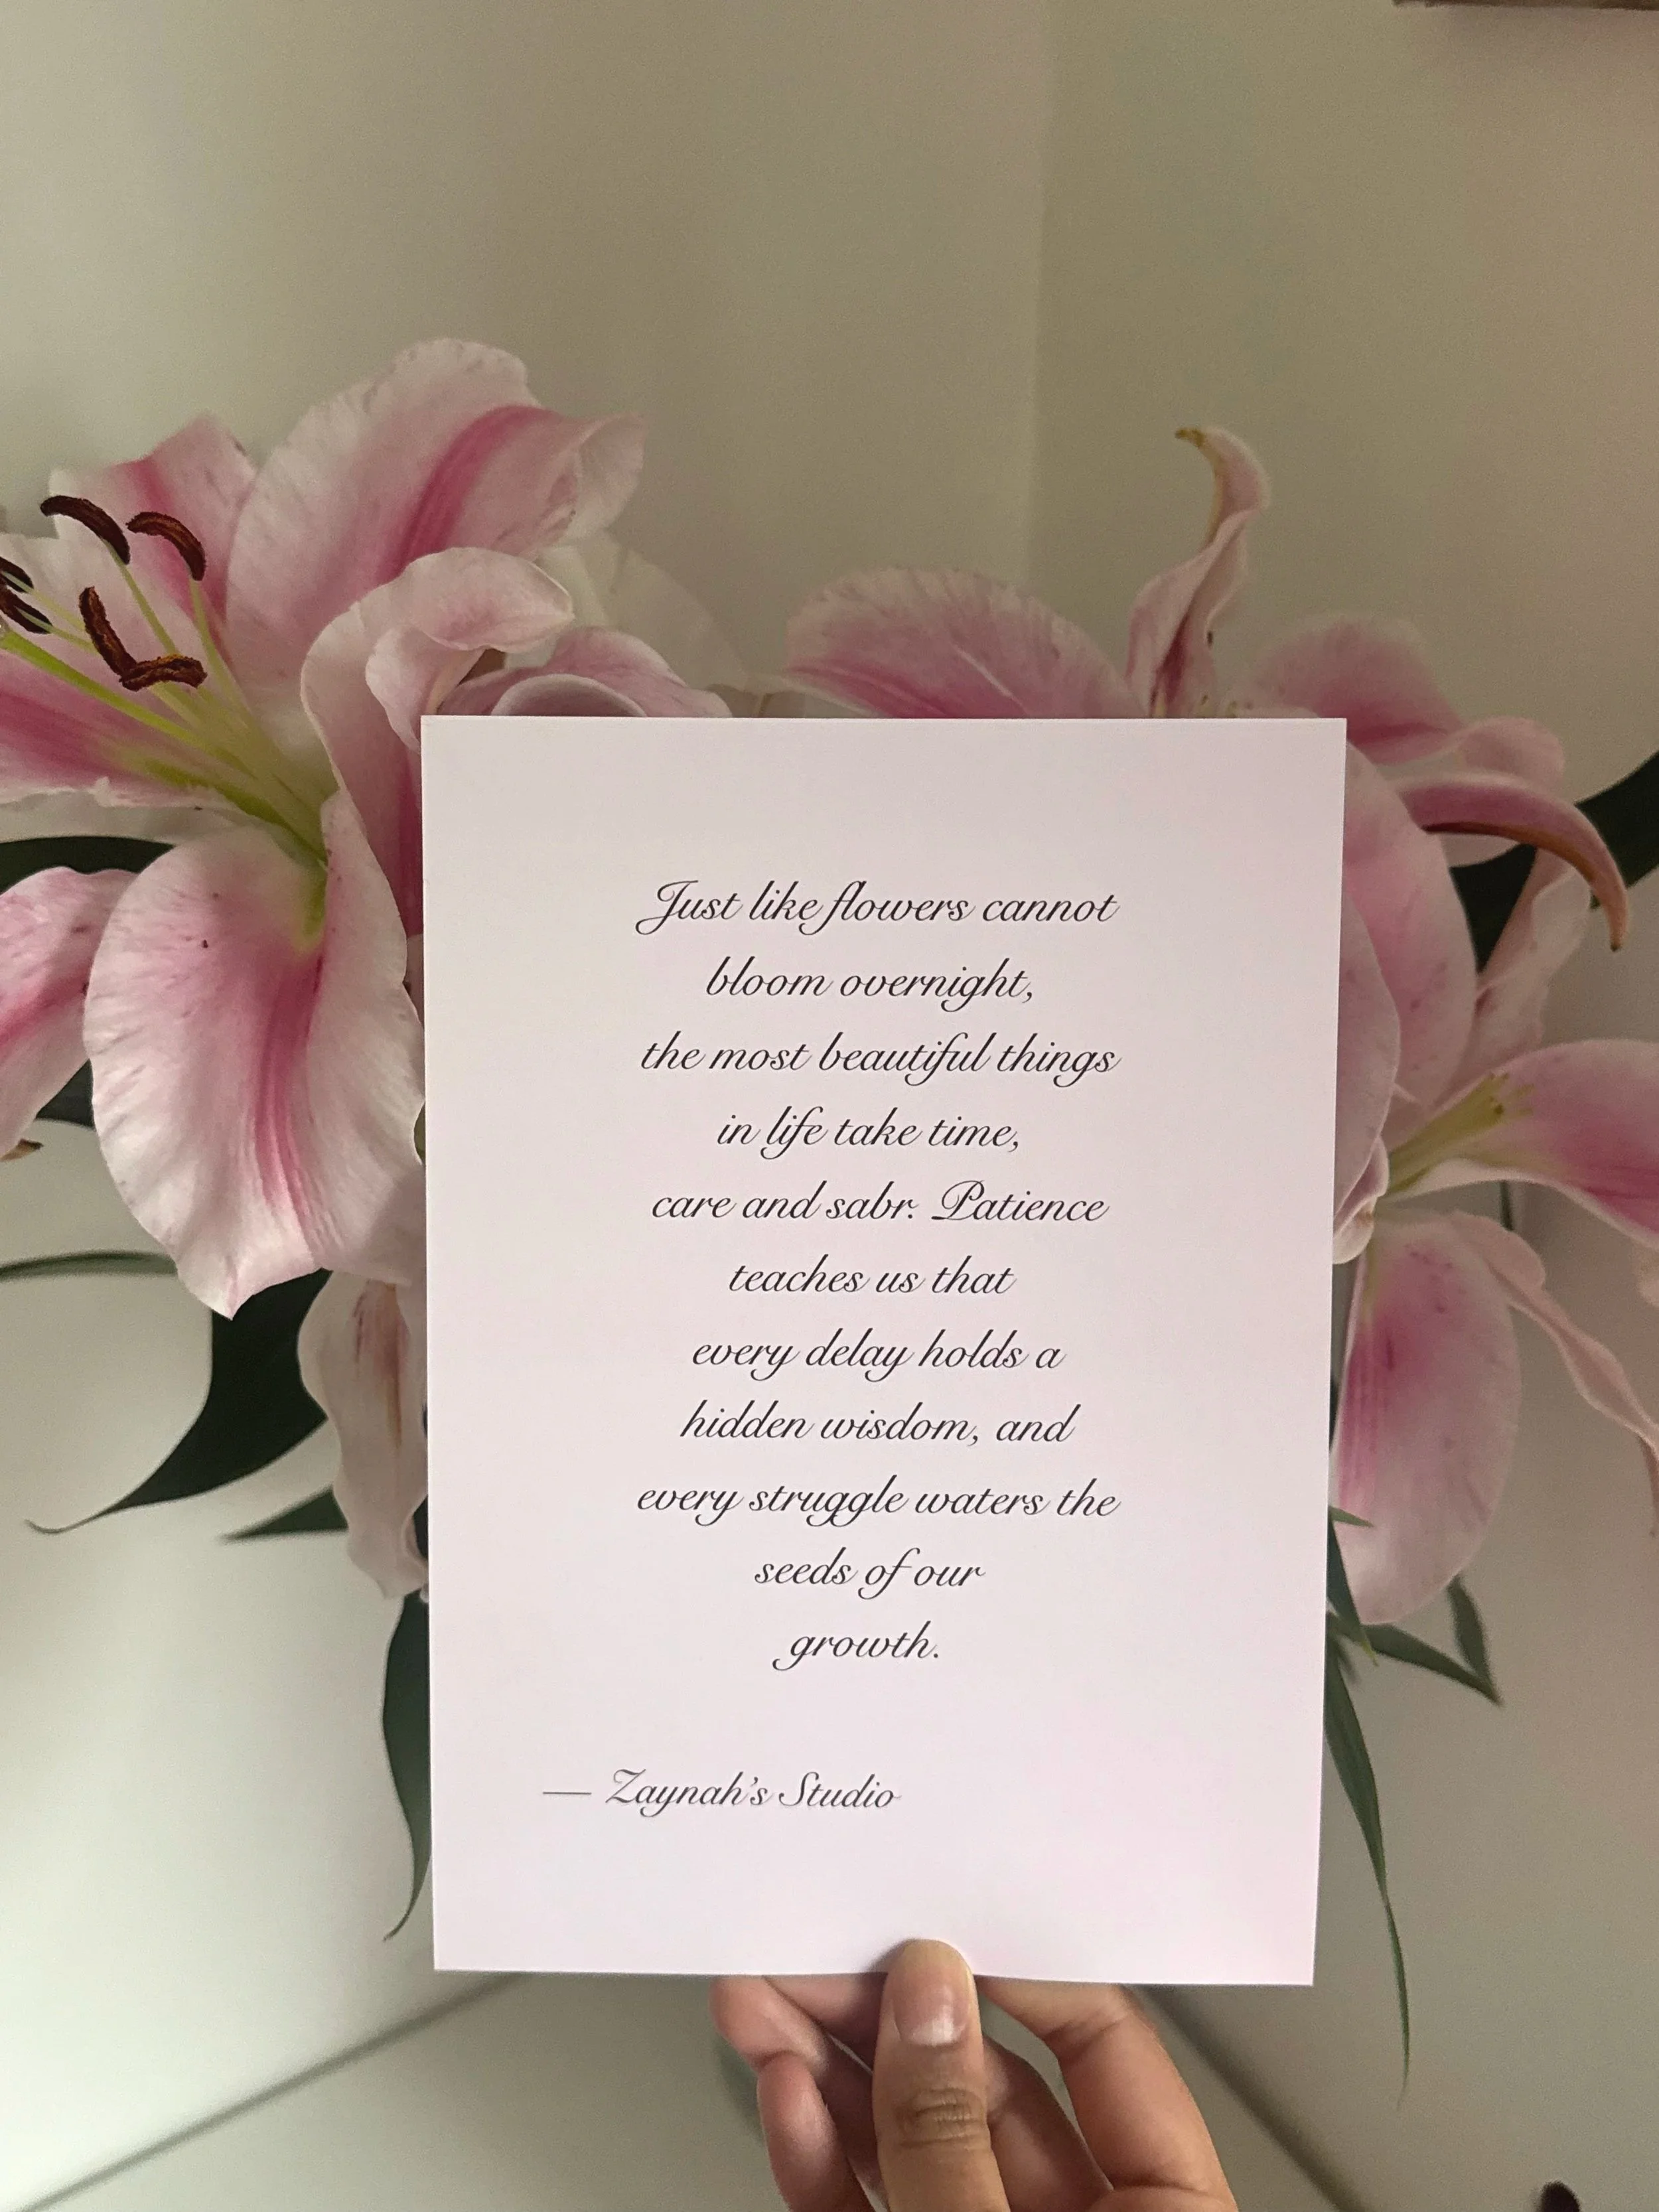 Just like flowers cannot
bloom overnight,
the most beautiful things
in life take time,
care and sabr. Patience
teaches us that
every delay holds a
hidden wisdom, and
every struggle waters the
seeds of our
growth.
— Zaynah's Studio